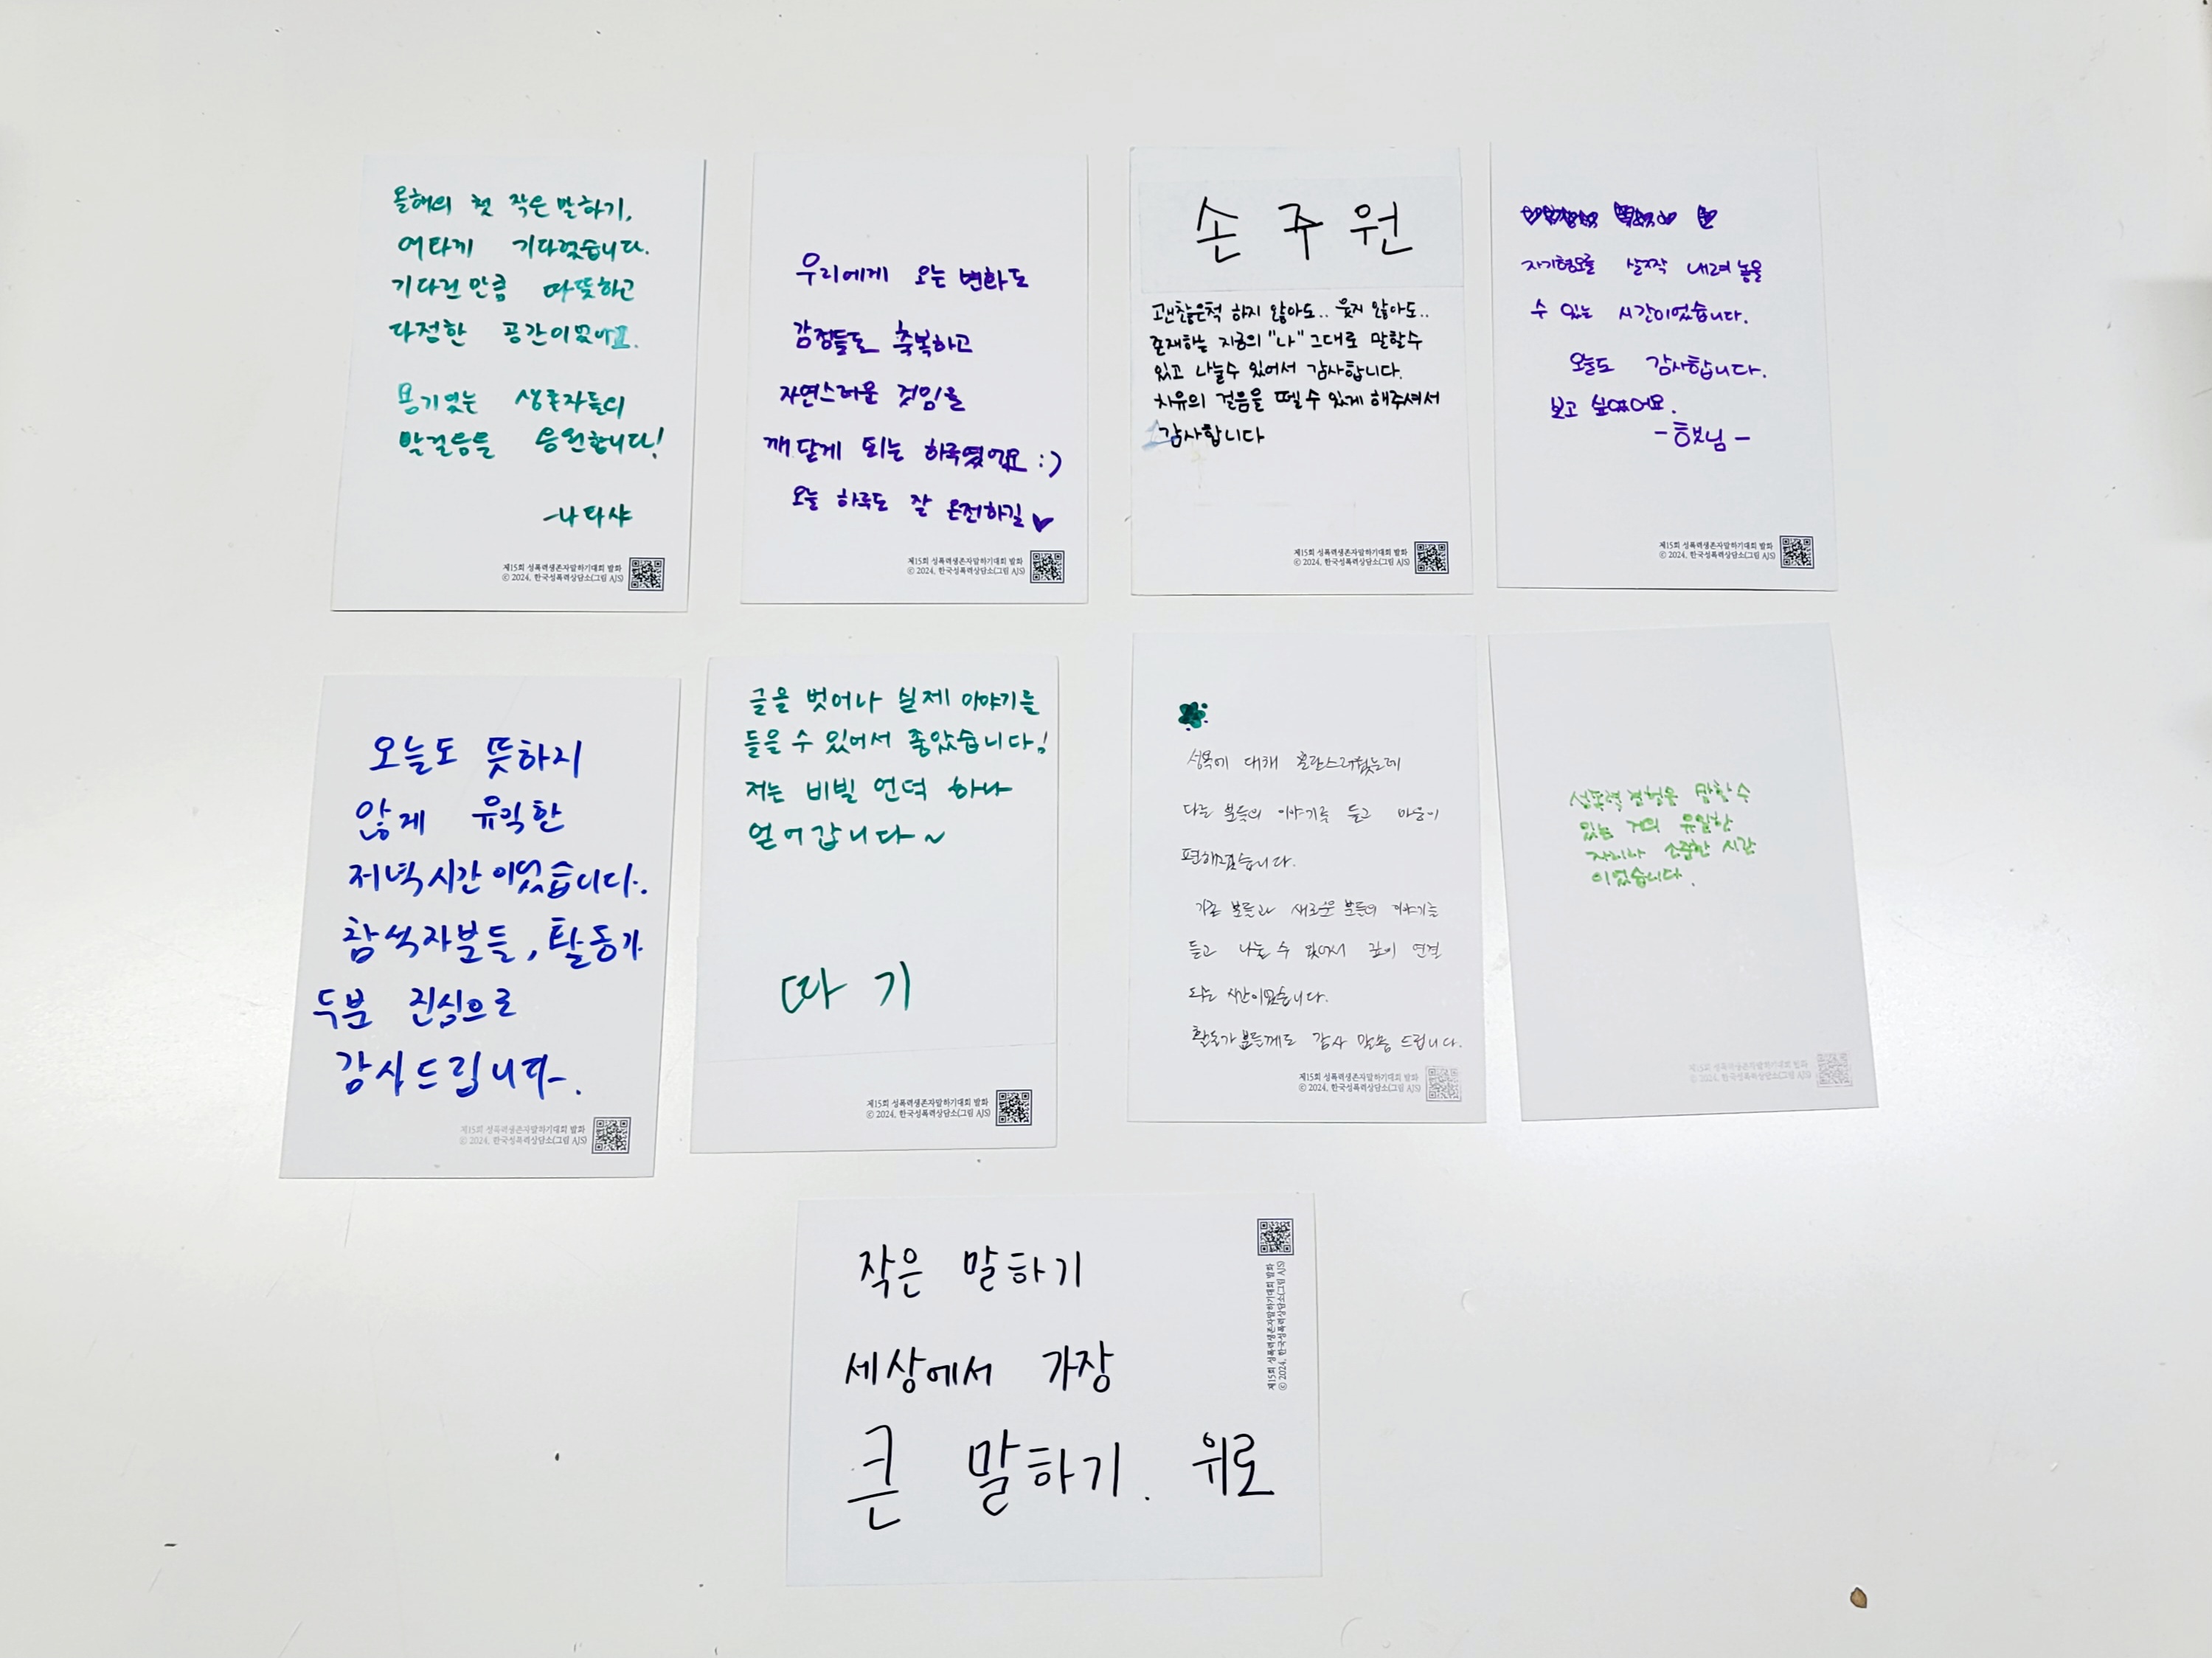 올해의 첫 작은 말하기,
애타게 기다렸습니다.
기다린 만큼 따뜻하고
다정한 공간이었어요.
용기있는 생존자들의
발걸음을 응원합니다!
-나타샤
제15회 성폭력생존자말하기대회 발화
© 2024. 한국성폭력상담소(그림 AJS)
우리에게 오는 변화도
감정들도 축복하고
자연스러운 것임을
깨닫게 되는 하루였어요 :)
오늘 하루도 잘 운전하길 ♥
제15회 성폭력생존자말하기대회 발화
© 2024. 한국성폭력상담소(그림 AJS)
손주원
괜찮은척 하지 않아도.. 웃지 않아도..
존재하는 지금의 "나" 그대로 말할수
있고 나눌수 있어서 감사합니다.
치유의 걸음을 뗄 수 있게 해주셔서
감사합니다
제15회 성폭력생존자말하기대회 발화
© 2024. 한국성폭력상담소(그림 AJS)
자기혐오를 살짝 내려 놓을
수 있는 시간이었습니다.
오늘도 감사합니다.
보고 싶었어요.
-햇님-
제15회 성폭력생존자말하기대회 발화
© 2024. 한국성폭력상담소(그림 AJS)
오늘도 뜻하지
않게 유익한
저녁시간이었습니다.
참석자분들, 활동가
두분 진심으로
감사드립니다.
제15회 성폭력생존자말하기대회 발화
© 2024. 한국성폭력상담소(그림 AJS)
글을 벗어나 실제 이야기를
들을 수 있어서 좋았습니다!
저는 비빌 언덕 하나
얻어 갑니다~
따기
제15회 성폭력생존자말하기대회 발화
© 2024. 한국성폭력상담소(그림 AJS)
성욕에 대해 혼란스러웠는데
다른 분들의 이야기를 듣고 마음이
편해졌습니다.
기존 분들과 새로운 분들의 이야기를
듣고 나눌 수 있어서 깊이 연결
되는 시간이었습니다.
활동가분들께도 감사 말씀 드립니다.
제15회 성폭력생존자말하기대회 발화
© 2024. 한국성폭력상담소(그림 AJS)
성폭력 경험을 말할 수
있는 거의 유일한
자리라 소중한 시간
이었습니다.
제15회 성폭력생존자말하기대회 발화
© 2024. 한국성폭력상담소(그림 AJS)
작은 말하기
세상에서 가장
큰 말하기. 위로
제15회 성폭력생존자말하기대회 발화
© 2024. 한국성폭력상담소(그림 AJS)